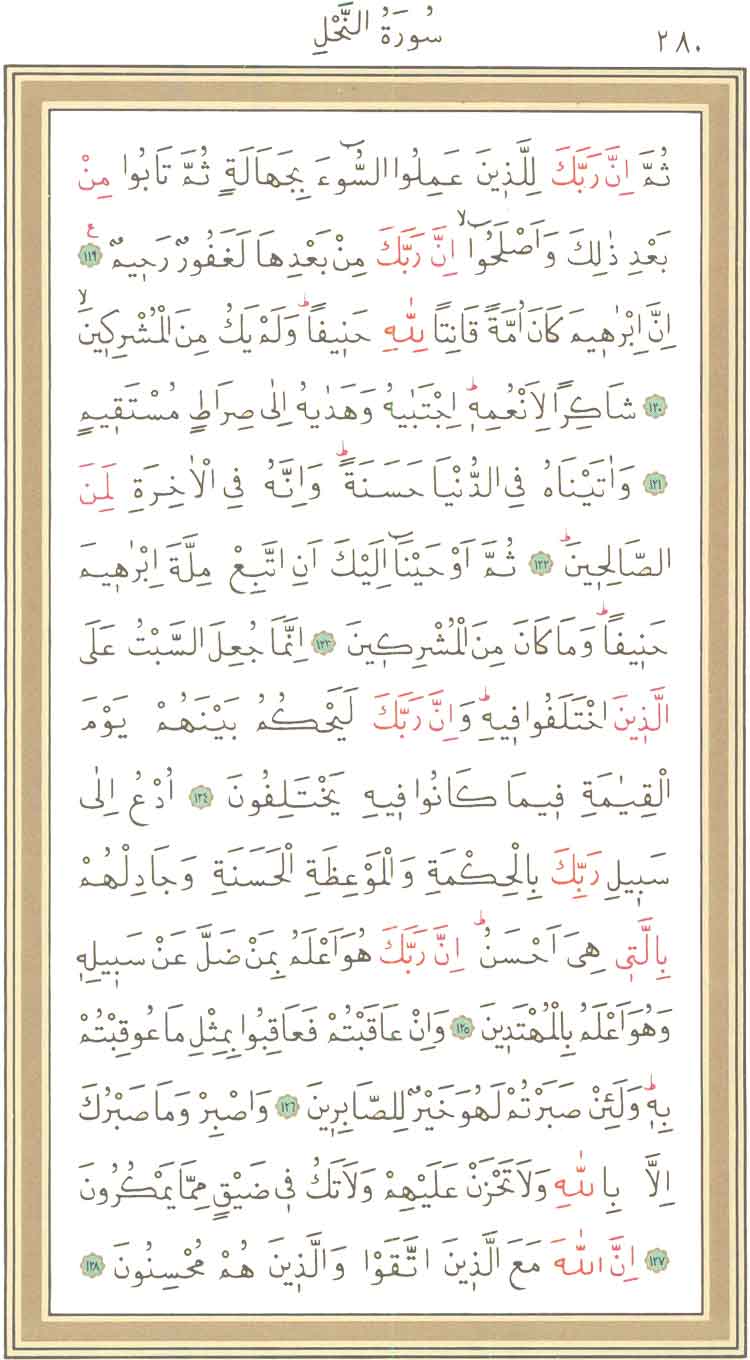 ٢٨٠ سُورَةُ النَّحْلِ
ثُمَّ اِنَّ رَبَّكَ لِلَّذ۪ينَ عَمِلُوا السُّٓوءَ بِجَهَالَةٍ ثُمَّ تَابُوا مِنْ
بَعْدِ ذٰلِكَ وَاَصْلَحُٓوا ۙ اِنَّ رَبَّكَ مِنْ بَعْدِهَا لَغَفُورٌ رَح۪يمٌ ﴿١١٩﴾ ع
اِنَّ اِبْرٰه۪يمَ كَانَ اُمَّةً قَانِتًا لِلّٰهِ حَن۪يفًا ۜ وَلَمْ يَكُ مِنَ الْمُشْرِك۪ينَ ۙ
﴿١٢٠﴾ شَاكِرًا لِاَنْعُمِه۪ ۜ اِجْتَبٰيهُ وَهَدٰيهُ اِلٰى صِرَاطٍ مُسْتَق۪يمٍ
﴿١٢١﴾ وَاٰتَيْنَاهُ فِي الدُّنْيَا حَسَنَةً ۜ وَاِنَّهُ فِي الْاٰخِرَةِ لَمِنَ
الصَّالِح۪ينَ ۜ ﴿١٢٢﴾ ثُمَّ اَوْحَيْنَٓا اِلَيْكَ اَنِ اتَّبِعْ مِلَّةَ اِبْرٰه۪يمَ
حَن۪يفًا ۜ وَمَا كَانَ مِنَ الْمُشْرِك۪ينَ ﴿١٢٣﴾ اِنَّمَا جُعِلَ السَّبْتُ عَلَى
الَّذ۪ينَ اخْتَلَفُوا ف۪يهِ ۜ وَاِنَّ رَبَّكَ لَيَحْكُمُ بَيْنَهُمْ يَوْمَ
الْقِيٰمَةِ ف۪يمَا كَانُوا ف۪يهِ يَخْتَلِفُونَ ﴿١٢٤﴾ اُدْعُ اِلٰى
سَب۪يلِ رَبِّكَ بِالْحِكْمَةِ وَالْمَوْعِظَةِ الْحَسَنَةِ وَجَادِلْهُمْ
بِالَّت۪ي هِيَ اَحْسَنُ ۜ اِنَّ رَبَّكَ هُوَ اَعْلَمُ بِمَنْ ضَلَّ عَنْ سَب۪يلِه۪
وَهُوَ اَعْلَمُ بِالْمُهْتَد۪ينَ ﴿١٢٥﴾ وَاِنْ عَاقَبْتُمْ فَعَاقِبُوا بِمِثْلِ مَا عُوقِبْتُمْ
بِه۪ ۜ وَلَئِنْ صَبَرْتُمْ لَهُوَ خَيْرٌ لِلصَّابِر۪ينَ ﴿١٢٦﴾ وَاصْبِرْ وَمَا صَبْرُكَ
اِلَّا بِاللّٰهِ وَلَا تَحْزَنْ عَلَيْهِمْ وَلَا تَكُ ف۪ي ضَيْقٍ مِمَّا يَمْكُرُونَ
﴿١٢٧﴾ اِنَّ اللّٰهَ مَعَ الَّذ۪ينَ اتَّقَوْا وَالَّذ۪ينَ هُمْ مُحْسِنُونَ ﴿١٢٨﴾